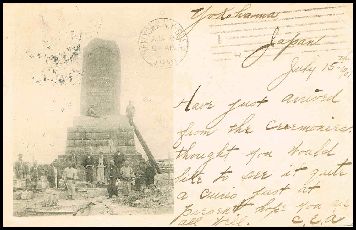 Yokohama
Japan
July 15th
Have just arrived
from the ceremonies
thought you would
like to see it quite
a curio just at
persent hope you are
all well. C.C.A